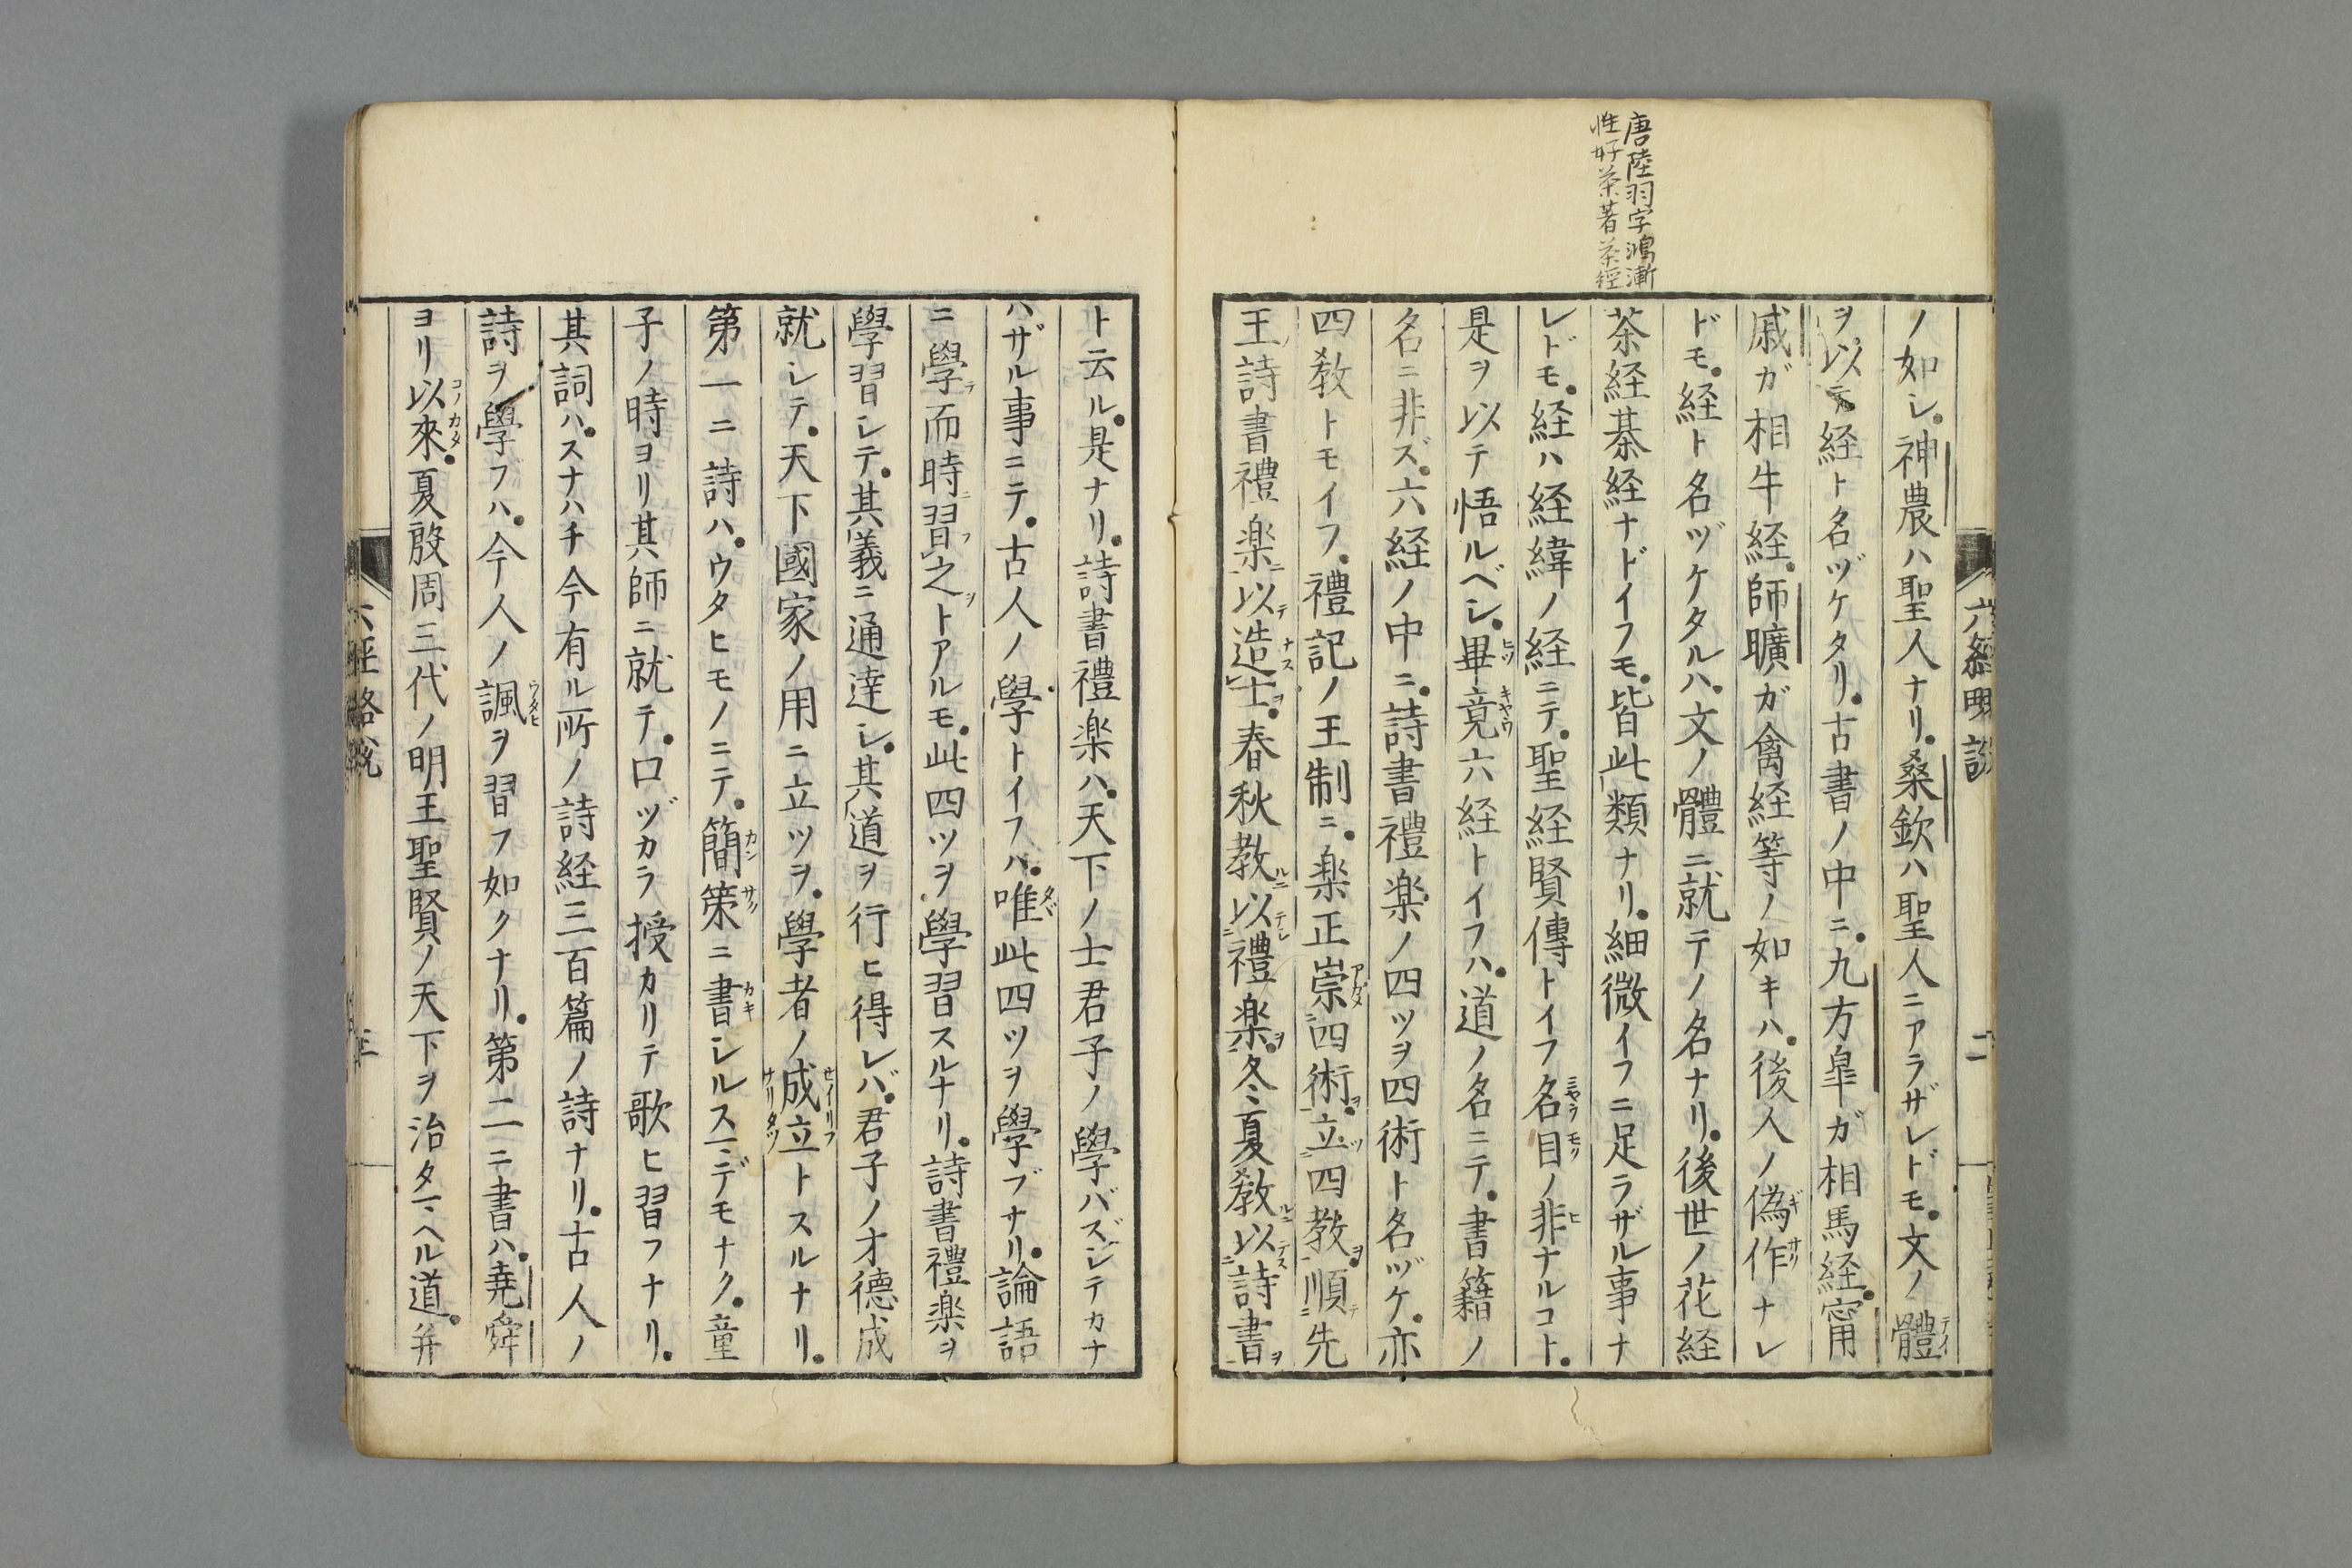 唐陸羽字鴻漸
性好茶著茶經
六經略説
二
ノ如シ。神農ハ聖人ナリ。桑欽ハ聖人ニアラザレドモ。文ノ體
ヲ以テ経ト名ヅケタリ。古書ノ中ニ。九方皐ガ相馬経。甯
戚ガ相牛経。師曠ガ禽経等ノ如キハ。後人ノ偽作ナレ
ドモ。経ト名ヅケタルハ。文ノ體ニ就テノ名ナリ。後世ノ花経
茶経棊経ナドイフモ。皆此類ナリ。細微イフニ足ラザル事ナ
レドモ。経ハ経緯ノ経ニテ。聖経賢傳トイフ名目ノ非ナルコト。
是ヲ以テ悟ルベシ。畢竟六経トイフハ。道ノ名ニテ。書籍ノ
名ニ非ズ。六経ノ中ニ。詩書禮楽ノ四ツヲ四術ト名ヅケ。亦
四敎トモイフ。禮記ノ王制ニ。楽正崇四術。立四教。順先
王詩書禮楽以造士。春秋教以禮楽。冬夏敎以詩書
ト云ル。是ナリ。詩書禮楽ハ。天下ノ士君子ノ學バズシテカナ
ハザル事ニテ。古人ノ學トイフハ。唯此四ツヲ學ブナリ。論語
ニ學而時習之トアルモ。此四ツヲ學習スルナリ。詩書禮楽ヲ
學習シテ。其義ニ通達シ。其道ヲ行ヒ得レバ。君子ノ才德成
就シテ。天下國家ノ用ニ立ツヲ。學者ノ成立トスルナリ。
第一ニ詩ハ。ウタヒモノニテ。簡策ニ書シルスマデモナク。童
子ノ時ヨリ其師ニ就テ。口ヅカラ授カリテ歌ヒ習フナリ。
其詞ハ。スナハチ今有ル所ノ詩経三百篇ノ詩ナリ。古人ノ
詩ヲ學フハ。今人ノ諷ヲ習フ如クナリ。第二ニ書ハ。堯舜
ヨリ以來。夏殷周三代ノ明王聖賢ノ天下ヲ治タマヘル道。并
六經略説
三